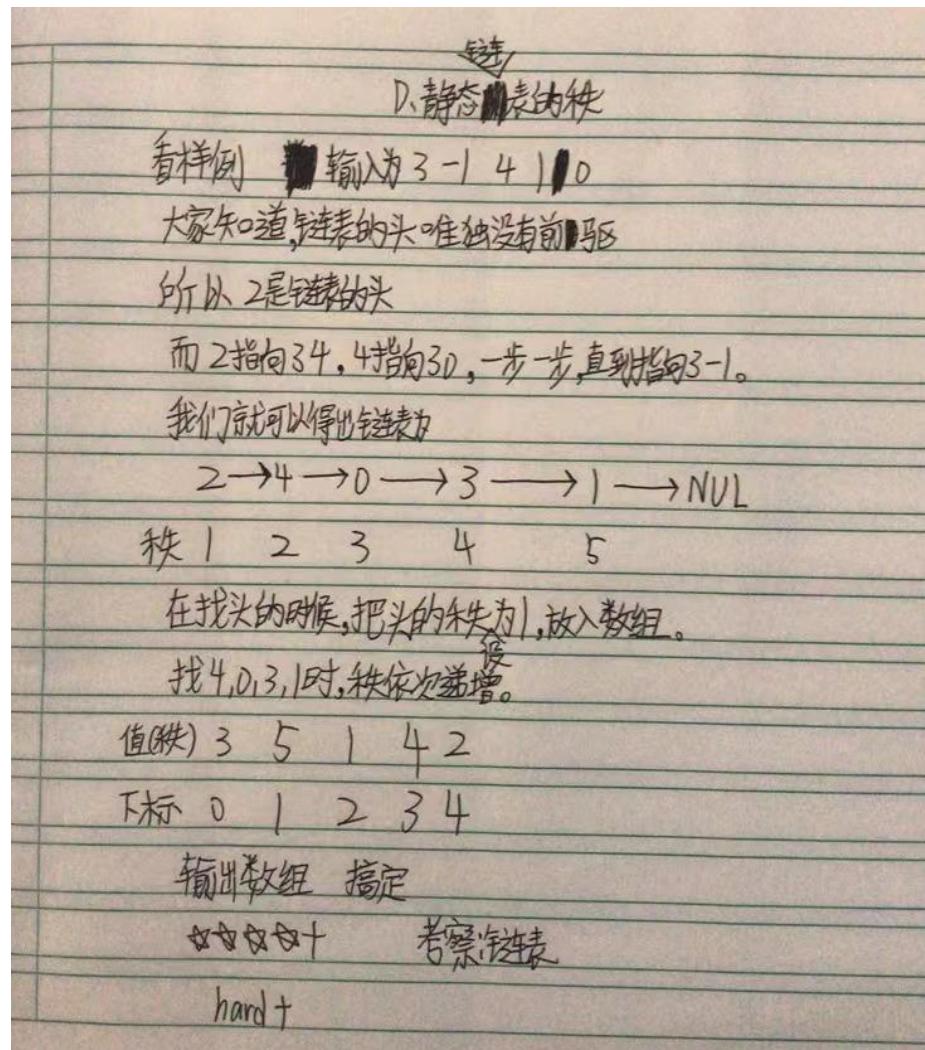 D、静态链表的秩
看样例 输入为 3 -1 4 1 0
大家知道,链表的头唯独没有前驱
所以 2是链表的头
而 2指向34,4指向30,一步一步,直到指向3-1。
我们就可以得出链表为
2→4→0→3→1→NUL
秩 1 2 3 4 5
在找头的时候,把头的秩设为1,放入数组。
找4,0,3,1时,秩依次递增。
值(秩) 3 5 1 4 2
下标 0 1 2 3 4
输出数组 搞定
☆☆☆☆+ 考察:链表
hard+